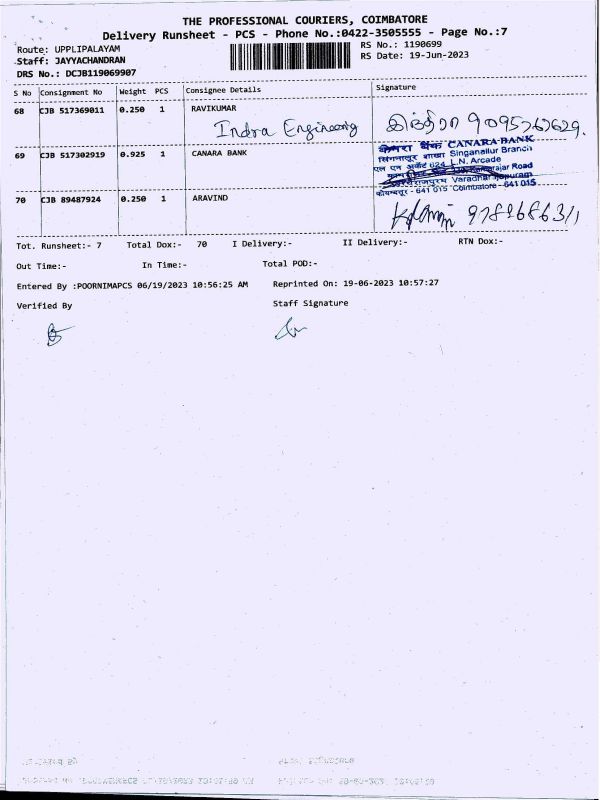 THE PROFESSIONAL COURIERS, COIMBATORE
Delivery Runsheet - PCS - Phone No.:0422-3505555 - Page No.:7
Route: UPPLIPALAYAM
RS No.: 1190699
Staff: JAYYACHANDRAN
RS Date: 19-Jun-2023
DRS No.: DCJB119069907
S No Consignment No Weight PCS Consignee Details Signature
68 CJB 517369011 0.250 1 RAVIKUMAR
Indra Engineering இந்திரா 9095262629.
69 CJB 517302919 0.925 1 CANARA BANK
केनरा बैंक CANARA BANK
सिंगानल्लूर शाखा Singanallur Branch
एल एन आर्केट 624, L.N. Arcade
Road
Varadharajapuram
कोयम्बत्तूर - 641 015 Coimbatore - 641 015
70 CJB 89487924 0.250 1 ARAVIND
Tot. Runsheet:- 7 Total Dox:- 70 I Delivery:- II Delivery:- RTN Dox:-
Out Time:- In Time:- Total POD:-
Entered By :POORNIMAPCS 06/19/2023 10:56:25 AM Reprinted On: 19-06-2023 10:57:27
Verified By Staff Signature